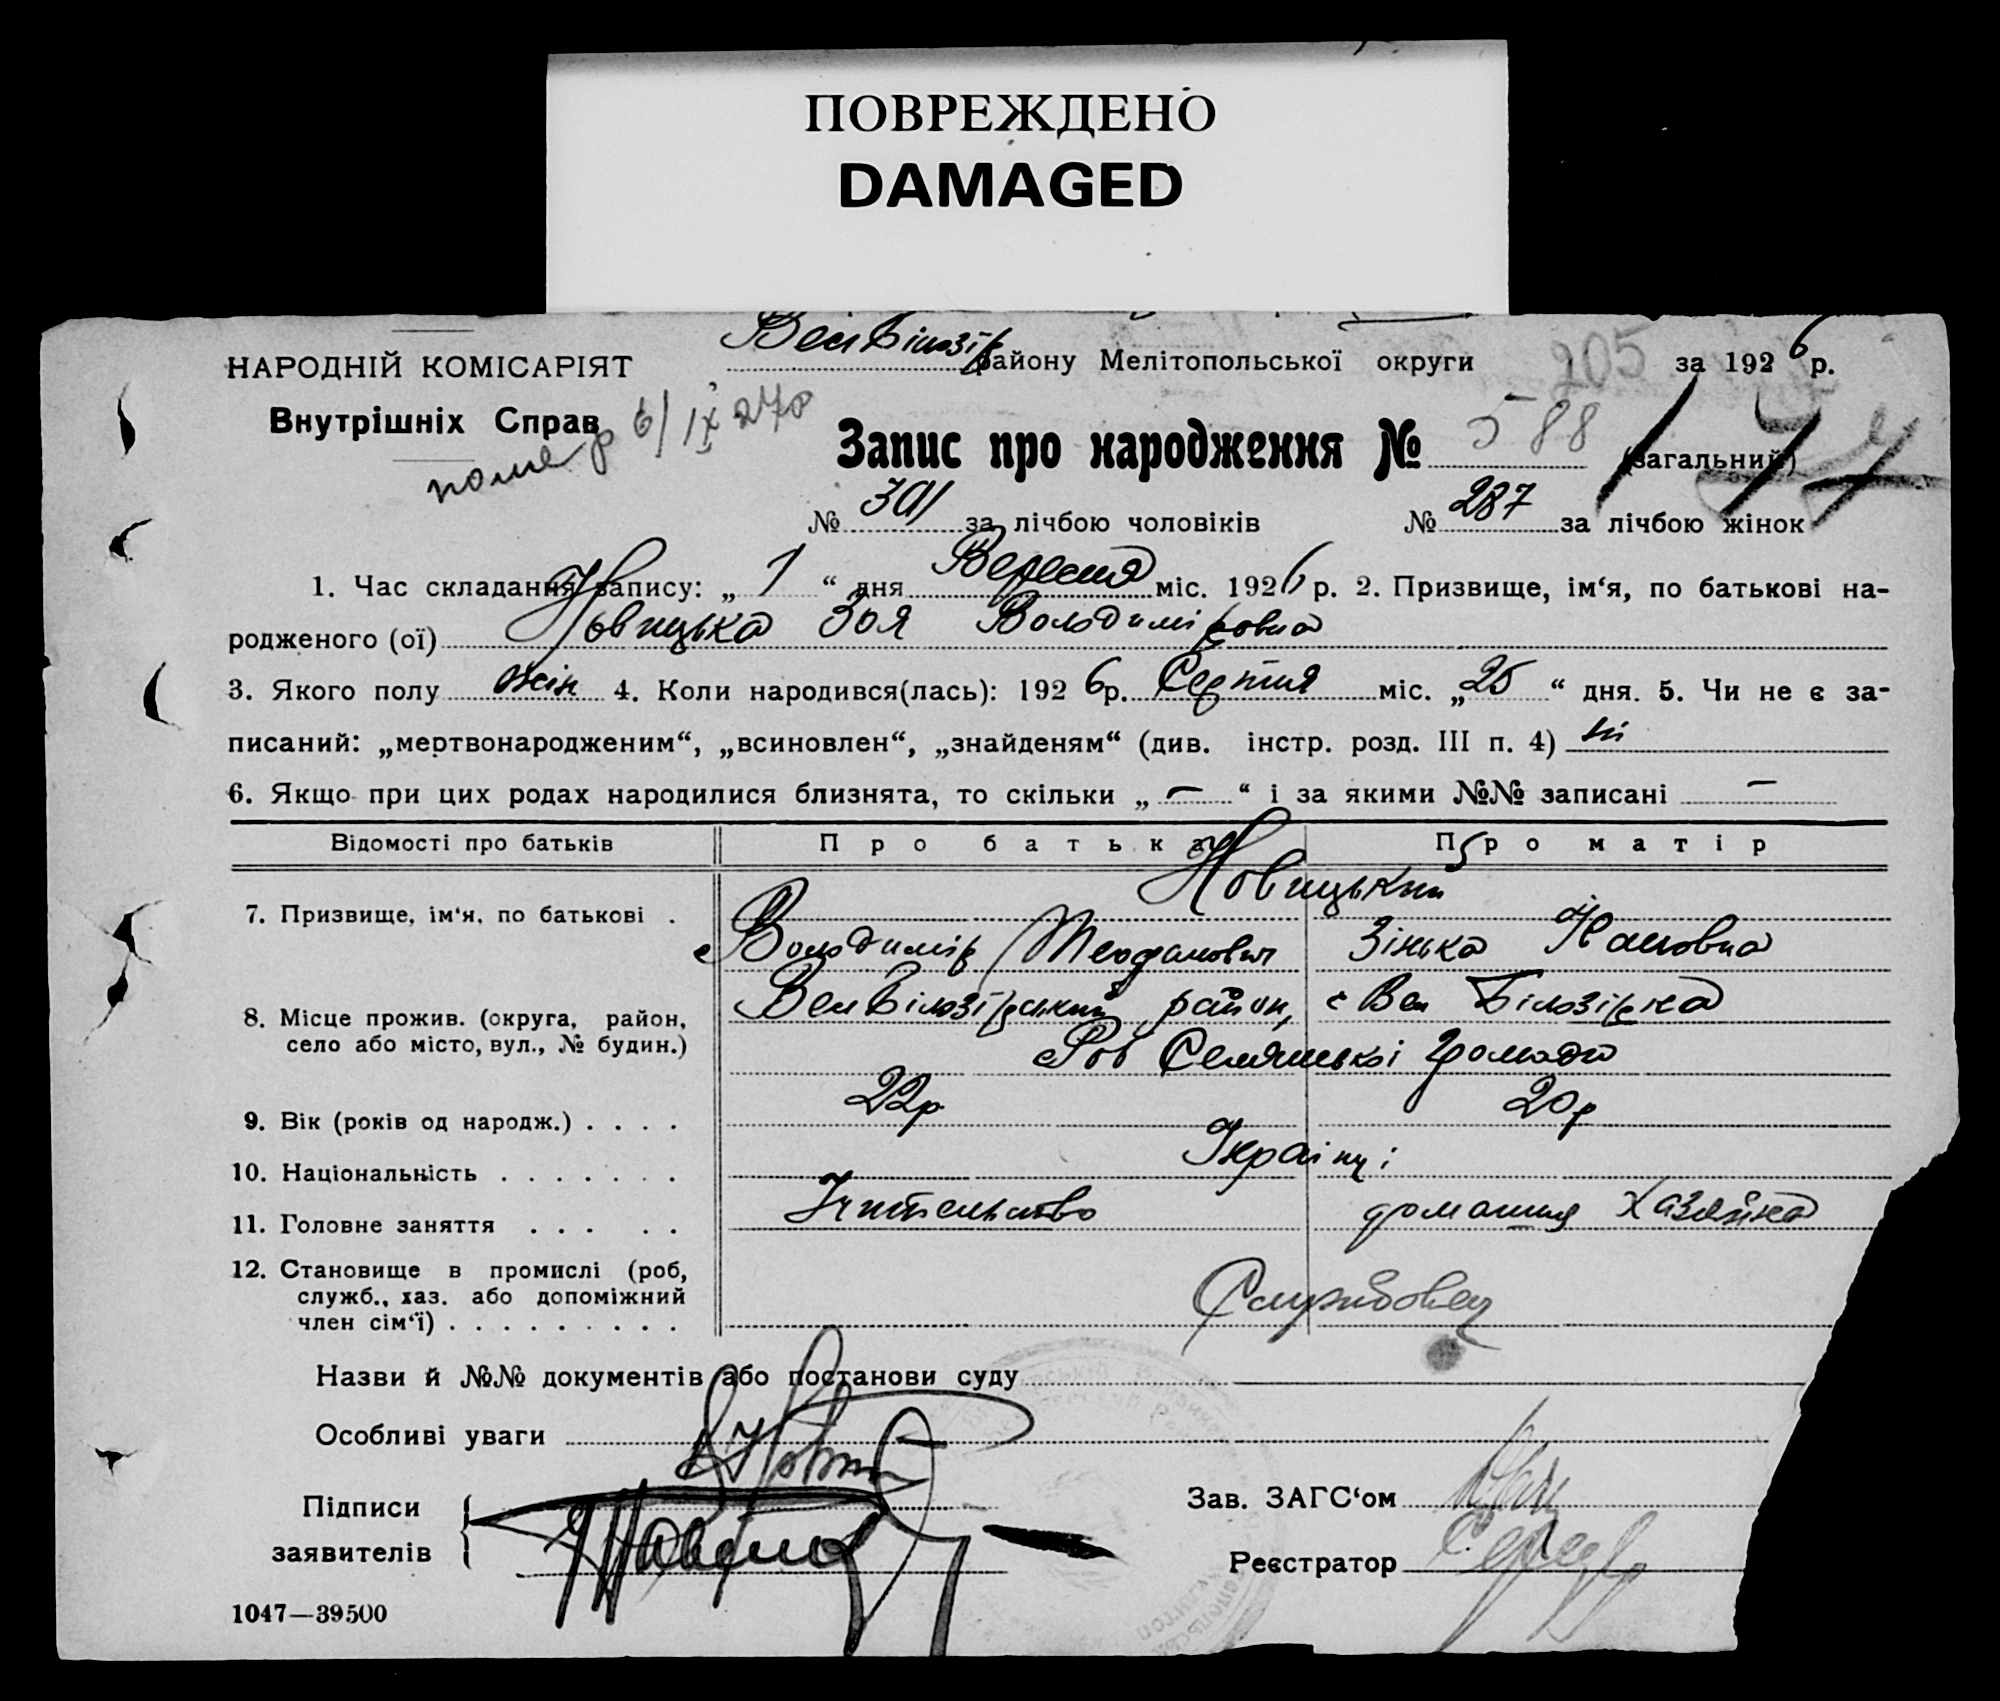 ПОВРЕЖДЕНО
DAMAGED
ВелБілозір району Мелітопольської округи 205 за 1926 р.
НАРОДНІЙ КОМІСАРІЯТ
Внутрішніх Справ
помер 6/IX 27р
Запис про народження № 588 (загальний) 174
№ 301 за лічбою чоловіків № 287 за лічбою жінок
1. Час складання запису: „ 1 “ дня Вересня міс. 1926 р. 2. Призвище, ім‘я, по батькові на-
родженого (ої) Новицька Зоя Володиміровна
3. Якого полу жін 4. Коли народився(лась): 1926 р. Серпня міс. „25“ дня. 5. Чи не є за-
писаний: „мертвонародженим“, „всиновлен“, „знайденям“ (див. інстр. розд. III п. 4) ні
6. Якщо при цих родах народилися близнята, то скільки „ — “ і за якими №№ записані —
Відомості про батьків Про батька Про матір
Новицькии
7. Призвище, ім‘я, по батькові . Володимір Теофанович Зінька
8. Місце прожив. (округа, район, ВелБілозірський район, с Вел Білозірка
село або місто, вул., № будин.) громади
9. Вік (років од народж.) . . . . 22р 20р
10. Національність . . . . . . . Українці
11. Головне заняття . . . . . Учительство домашня хазяйка
12. Становище в промислі (роб, Службовец
служб., хаз. або допоміжний
член сім‘ї) . . . . . . . . .
Назви й №№ документів або постанови суду
Особливі уваги
Підписи
заявителів
Зав. ЗАГС‘ом
Реєстратор
1047—39500